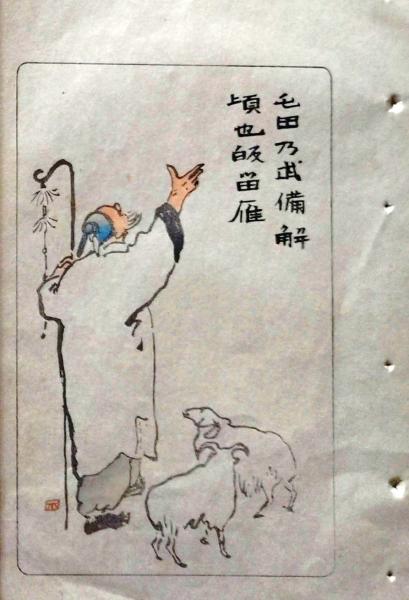 毛田乃武備解
頃也皈留雁